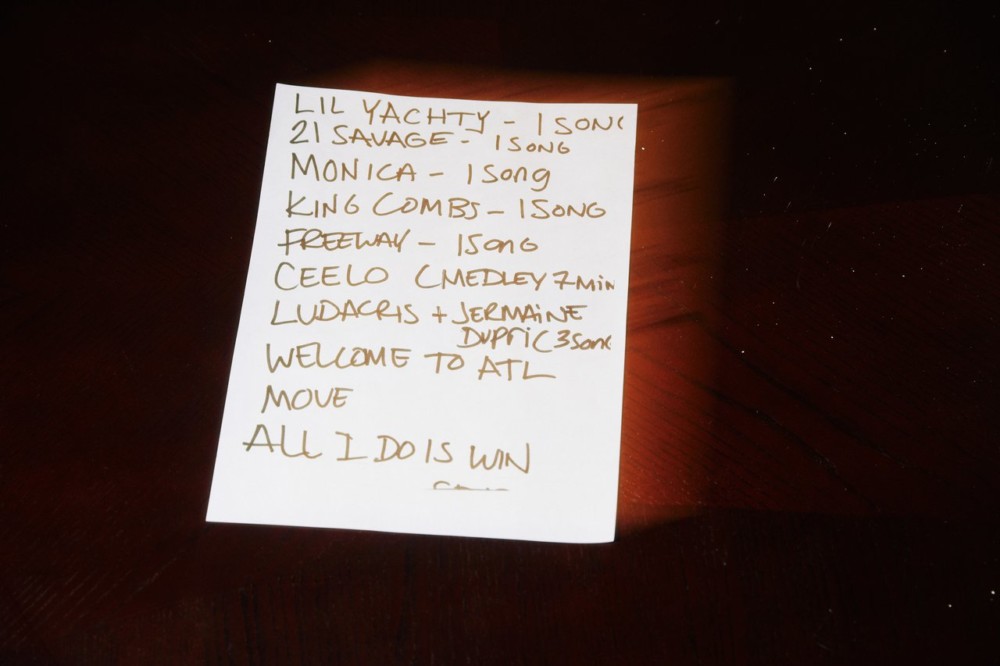 LIL YACHTY - 1 SONG
21 SAVAGE - 1 SONG
MONICA - 1 Song
KING COMBS - 1 SONG
FREEWAY - 1 Song
CEELO (MEDLEY 7 Min
LUDACRIS + JERMAINE
DUPRI (3 Song
WELCOME TO ATL
MOVE
ALL I DO IS WIN